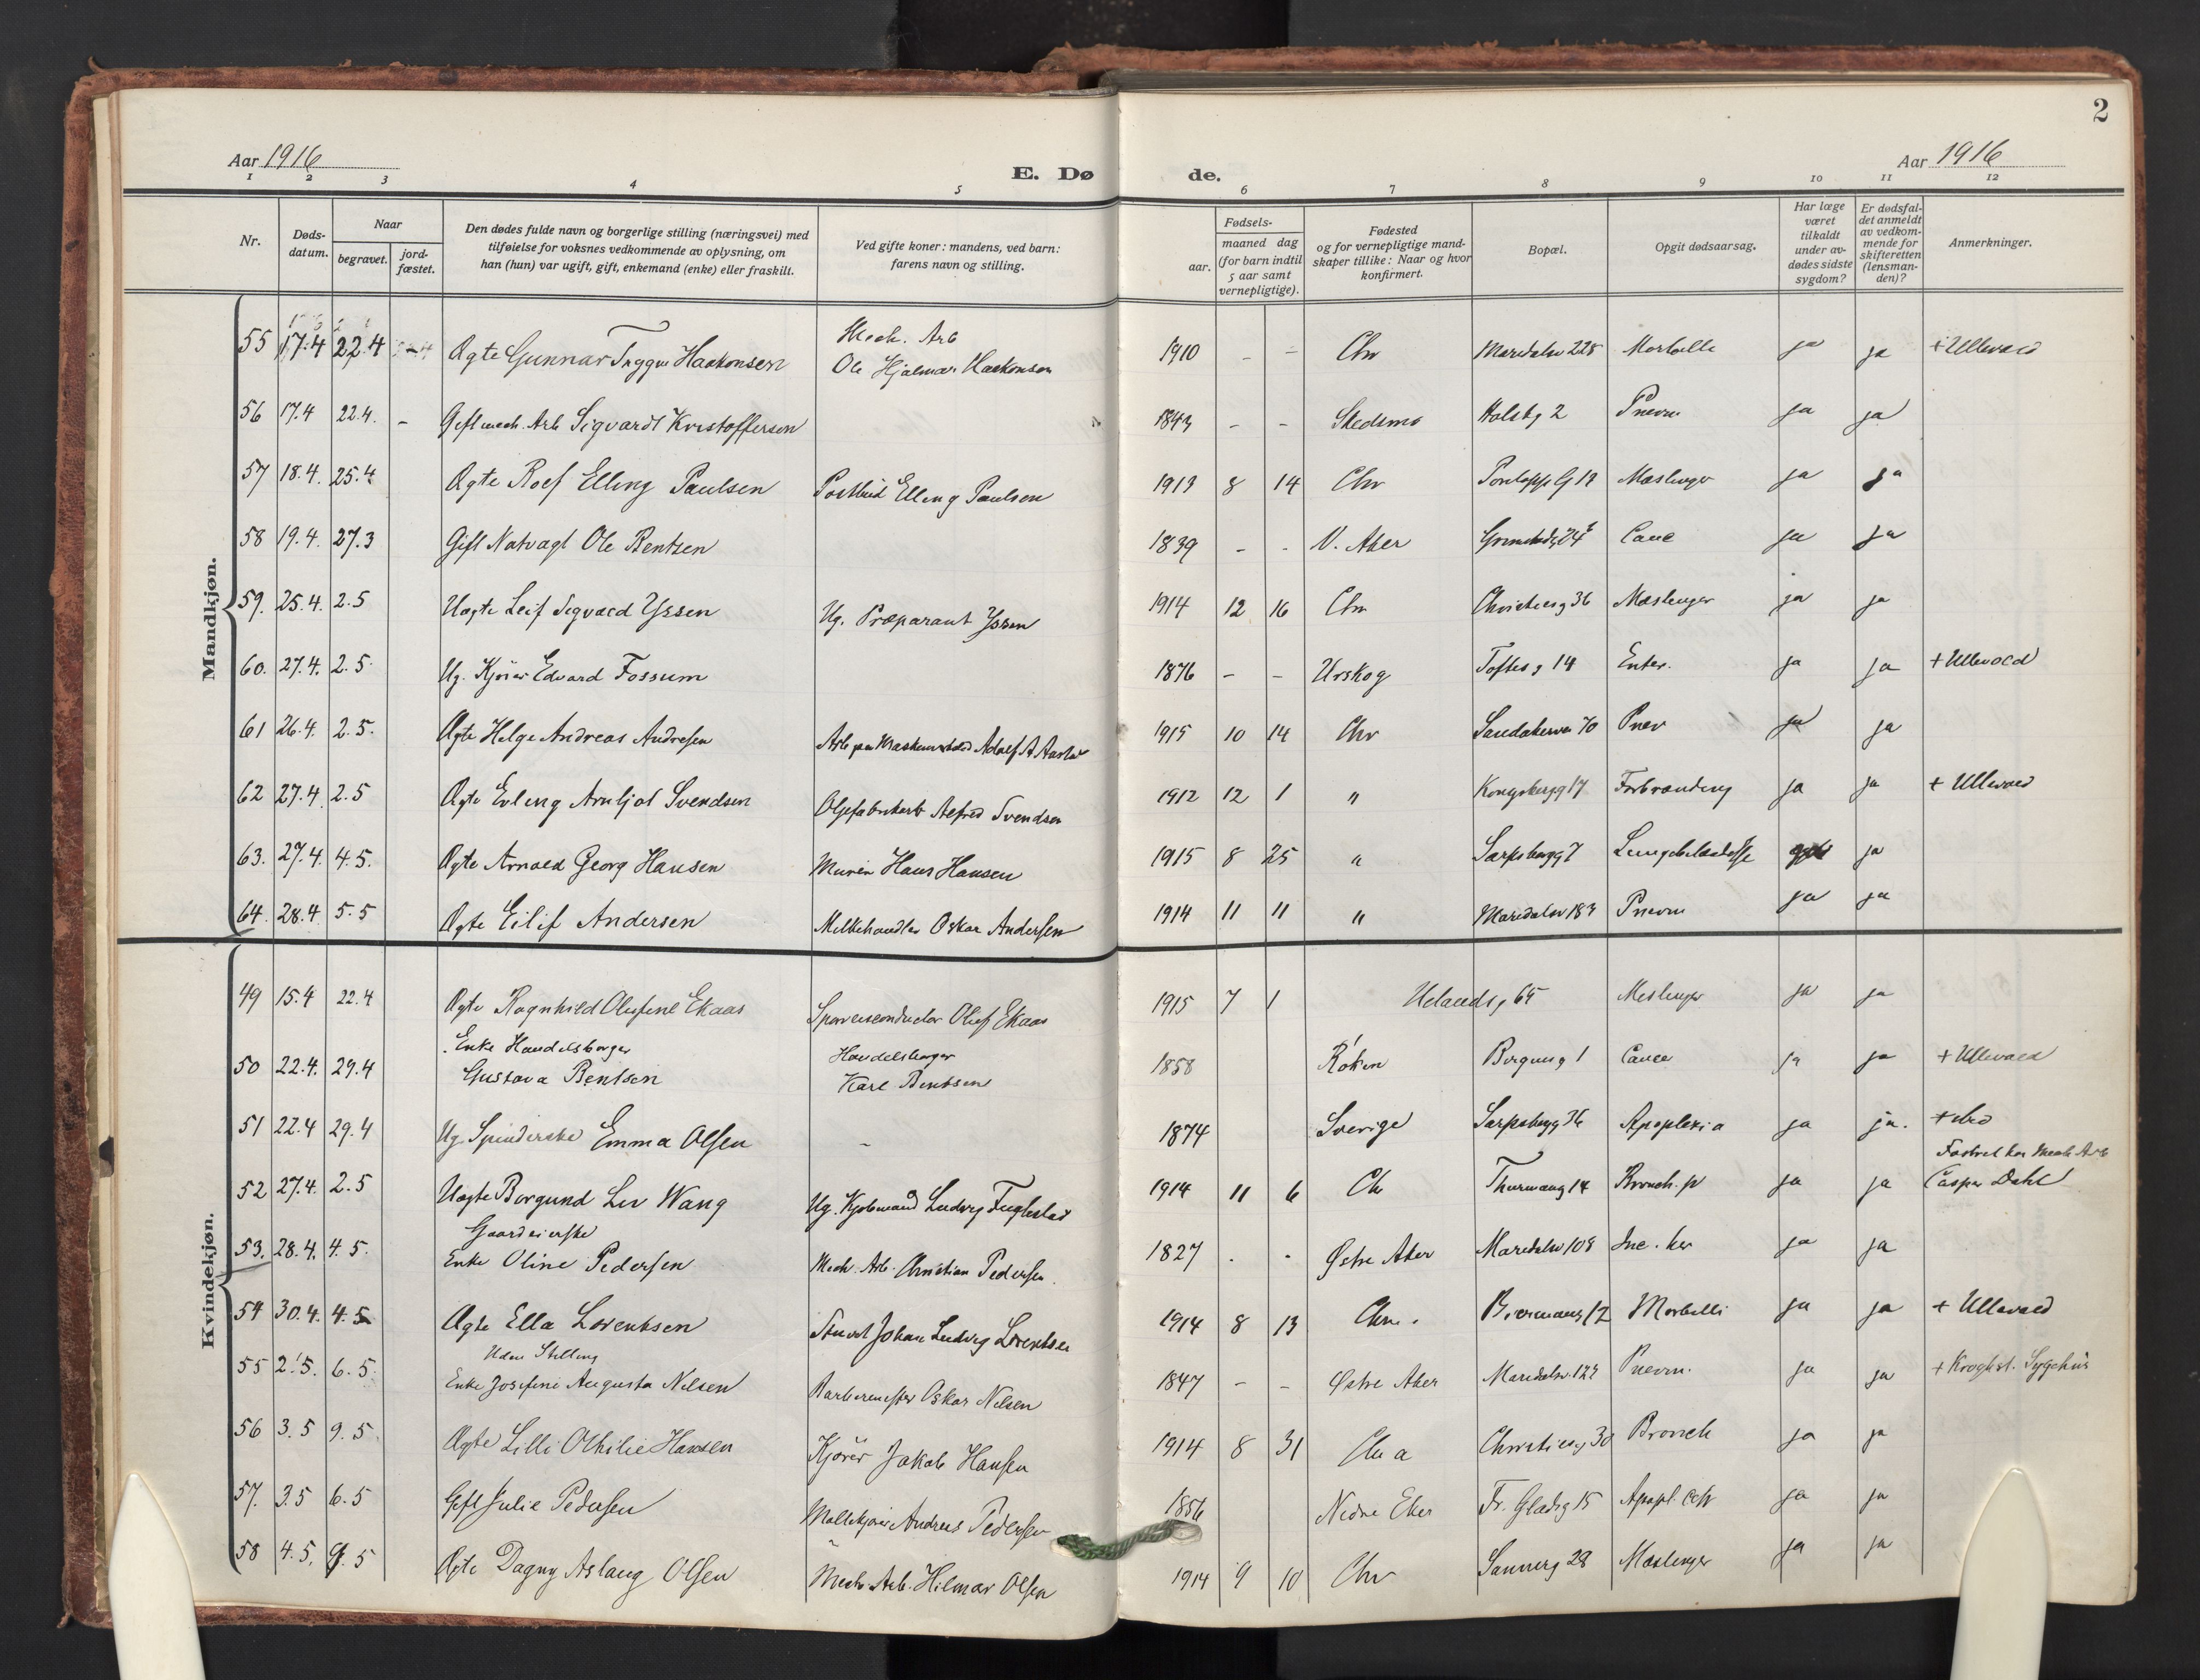 2
Aar 1916
E. Dø de.
Aar 1916
1 2 3 4 5 6 7 8 9 10 11 12
Nr.
Døds-datum.
Naar
begravet.
jord-fæstet.
Den dødes fulde navn og borgerlige stilling (næringsvei) med
tilføielse for voksnes vedkommende av oplysning, om
han (hun) var ugift, gift, enkemand (enke) eller fraskilt.
Ved gifte koner: mandens, ved barn:
farens navn og stilling.
Fødsels-
aar.
maaned dag
(for barn indtil
5 aar samt
vernepligtige).
Fødested
og for vernepligtige mand-
skaper tillike: Naar og hvor
konfirmert.
Bopæl.
Opgit dødsaarsag.
Har læge
været
tilkaldt
under av-
dødes sidste
sygdom?
Er dødsfal-
det anmeldt
av vedkom-
mende for
skifteretten
(lensman-
den)?
Anmerkninger.
Mandkjøn.
Mech. Arb
55 17.4 22.4 – Ægte Gunnar Trygve Haakonsen Ole Hjalmar Haakonsen 1910 – – Chr Maridalsv 228 Morbilli ja ja + Ullevaal
56 17.4 22.4. – Gift mech. Arb Sigvardt Kristoffersen 1843 – – Skedsmo Holstg 2 Pneum ja ja
57 18.4. 25.4 Ægte Roef Elling Paulsen Postbud Elling Paulsen 1913 8 14 Chr Mæslinger ja ja
58 19.4. 27.3 Gift Natvagt Ole Bentsen 1839 – – V. Aker Canc ja ja
59. 25.4. 2.5 Uægte Leif Sigvard Yssen Ug. Præparant Yssen 1914 12 16 Chr Christiesg 36 Mæslinger ja ja
60. 27.4. 2.5. Ug. Kjører Edvard Fossum 1876 – – Urskog Toftesg 14 Enter. ja ja + Ullevold
61 26.4. 2.5. Ægte Helge Andreas Andresen 1915 10 14 Chr Sandakerven 70 Pnev ja ja
62 27.4. 2.5 Ægte Erling Arnljot Svendsen Oljefabrikarb Alfred Svendsen 1912 12 1 " Kongsbergg 17 Forbrænding ja ja + Ullevaal
63. 27.4. 4.5. Ægte Arnold Georg Hansen Murer Hans Hansen 1915 8 25 " Sarpsborgg 7 Lungebetændelse ja
64. 28.4. 5.5 Ægte Eilif Andersen Melkehandler Oskar Andersen 1914 11 11 " Maridalsv 183 Pneum ja ja
Kvindekjøn.
49 15.4 22.4 Ægte Ragnhild Olufine Ekaas Sporveisconductør Oluf Ekaas 1915 7 1 Uelandsg 65 Meslinger ja ja
Enke Handelsborger Handelsborger
50 22.4. 29.4 Gustava Bentsen Karl Bentsen 1858 Røken Bergensg 1 Cance ja ja + Ullevaal
51 22.4 29.4 Ug. Spinderske Emma Olsen – 1874 Sverige Sarpsborgg 36 Apoplexia ja ja.
Fostret hos Mech Arb
52 27.4. 2.5 Uægte Borgund Liv Wang Ug. Kjøbmand Ludvig Fuglestad 1914 11 6 Ch Thurmansg 14 Bronch. pn ja ja Casper Dahl
Gaardeierske
53. 28.4. 4.5. Enke Oline Pedersen Mech. Arb. Christian Pedersen. 1827 . . Østre Aker Maridalsv 108 ja ja
54 30.4. 4.5 Ægte Ella Lorentsen Johan Ludvig Lorentsen 1914 8 13 Chr. Biermansg 12 Morbilli ja ja + Ullevaal
Uden Stilling
55 2.5. 6.5. Enke Josefine Augusta Nilsen Barbermester Oskar Nilsen 1847 – – Østre Aker Maridalsv. 123 Pnevm. ja ja + Kroghst. Sygehus
56 3.5 9.5 Ægte Lilli Othilie Hansen Kjører Jakob Hansen 1914 8 31 Chr a Christiesg 30 Bronch ja ja
57. 3.5 6.5 Gift Julie Pedersen Møllekjører Andreas Pedersen 1856 Nedre Eker Fr. Gladsg 15 Apopl. ja ja
58 4.5. 9.5 Ægte Dagny Aslaug Olsen Mech Arb. Hilmar Olsen 1914 9 10 Chr Sannerg 28 Mæslinger ja ja